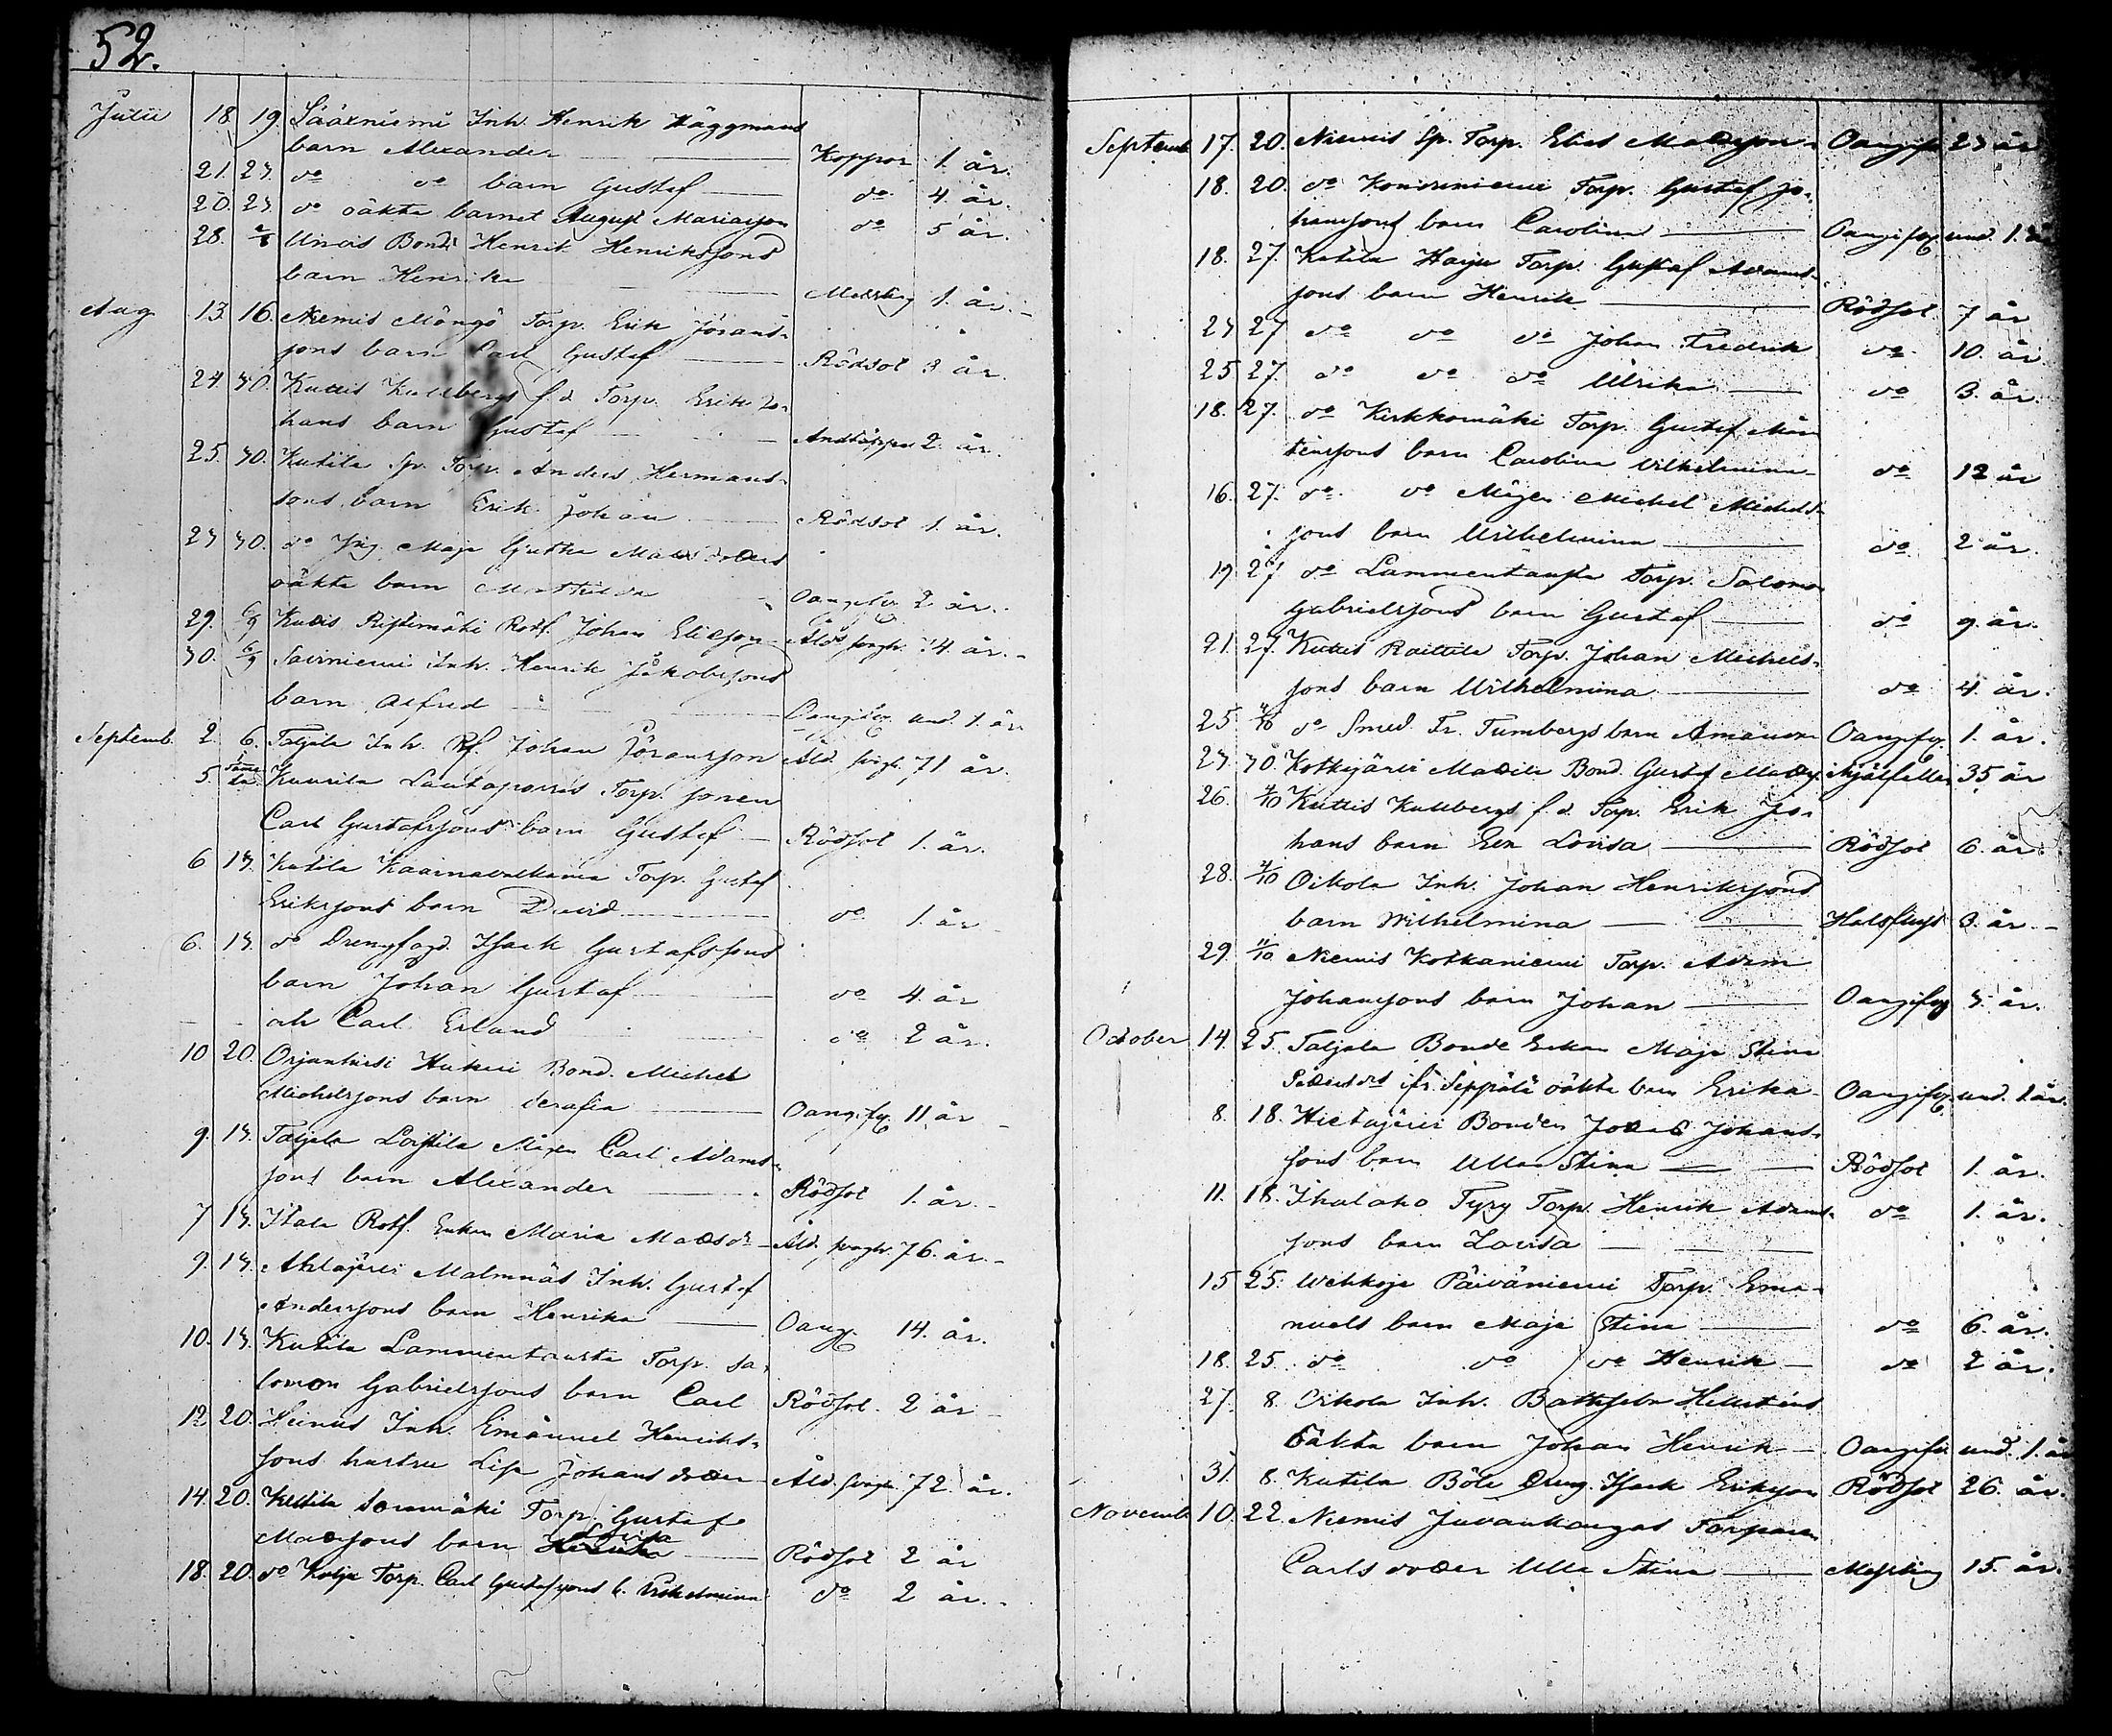 52.
Julii 18. 19. Sääxniemi Inh. Henrik Häggmans
barn Alexander Koppor 1. år.
21. 23. do do barn Gustaf do 4. år.
20. 23. do oäkta barnet August Mariasson do 5 år.
28. 2/8 Uncis Bond. Henrik Henrikssons
barn Henrika Messling 1. år.
Aug. 13. 16. Niemis Möngö Torp. Erik Jörans-
sons barn Carl Gustaf Rödsot 3 år.
24 30. Kuttis Kullbergs f.d. Torp. Erik Jo-
hans barn Gustaf Andtäppa 2. år.
25. 30. Kutila Sp. Torp. Anders Hermans-
sons barn Erik Johan Rödsot 1. år.
23 30. do Pig. Maja Greta Matsdotters
oäkta barn Mathilda Oangifv. 2 år.
29. 6/9 Kuttis Ristimäki Rotf. Johan Elisson Åld. svagh. 74 år.
30. 6/9 Sairniemi Inh. Henrik Jakobssons
barn Alfred Oangifv. und. 1. år
Septemb. 2. 6. Taljala Inh. Rf. Johan Göransson Åld. svagh. 71 år.
5. Kuurila Lautaporras Torp. sonen
Carl Gustafssons barn Gustaf Rödsot 1. år.
6 13. Kutila Kaarnavalkama Torp. Gustaf
Erikssons barn David do 1. år
6. 13. do Drengfogd. Isack Gustafssons
barn Johan Gustaf do 4. år
och Carl Erland do 2 år.
10 20. Orjanhirsi Hukari Bond. Michel
Michelssons barn Serafia Oangifv. 11 år
9. 13. Taljala Loistila Mågen Carl Adams-
sons barn Alexander Rödsot 1. år.
7 13. Itala Rotf. Enkan Maria Matsdr Åld. svagh. 76. år.
9. 13. Ahtajärvi Malmnäs Inh. Gustaf
Anderssons barn Henrika Oang. 14. år.
10. 13. Kutila Lammentausta Torp. Sa-
lomon Gabrielssons barn Carl Rödsot. 2 år
12 20. Heinus Inh. Emanuel Henriks-
sons hustru Lisa Johansdotter Åld. svagh. 72. år.
14. 20. Kutila Sorrmäki Torp. Gustaf
Lovisa
Matssons barn Henrika Rödsot 2 år
18. 20. do Kolja Torp. Carl Gustafssons b. Vilhelmina do 2 år.
Septemb 17. 20. Niemis Sp. Torp. Elias Matsson Oangifv. 23 år
18. 20. do Konsraniemi Torp. Gustaf Jo-
hanssons barn Carolina Oangifv. und. 1. år
18. 27. Kutila Harju Torp. Gustaf Adams-
sons barn Henrik Rödsot 7 år
23 27 do do do Johan Fredrik do 10. år.
25 27. do do do Ulrika do 3. år.
18. 27. do Kirkkomäki Torp. Gustaf Mår-
tenssons barn Carolina Vilhelmina do 12 år
16. 27. do do Mågen Michel Michels-
sons barn Wilhelmina do 2 år.
19 27 do Lammentausta Torp. Salomon
Gabrielssons barn Gustaf do 9. år.
21. 27. Kuttis Raittila Torp. Johan Michels-
sons barn Wilhelmina do 4. år.
25 4/10 do Smed. Fr. Tumbergs barn Amanda Oangifv. 1. år.
23 30. Kotkajärvi Mattila Bond. Gustaf Matss. Ihjälfallen 35 år
26. 4/10 Kuttis Kullbergs f.d. Torp. Erik Jo-
hans barn Eva Lovisa Rödsot 6. år.
28. 4/10 Oikola Inh. Johan Henrikssons
barn Wilhelmina Halsfluss 3. år.
29. 11/10 Niemis Kotkaniemi Torp. Adam
Johanssons barn Johan Oangifv. 3. år.
October 14. 25. Taljala Bonde Enkan Maja Stina
fr. Seppälä oäkta barn Erika Oangifv. und. 1 år.
8. 18. Hietajärvi Bonden Johan Johans-
sons barn Ulla Stina Rödsot 1. år.
11. 18. Ihalaho Tyry Torp. Henrik Adams- do 1. år.
sons barn Lovisa
15 25. Wehkoja Päiväniemi Torp. Ema-
nuels barn Maja Stina do 6. år.
18. 25. do do do Henrik do 2 år.
27. 8. Oikola Inh. Bathseba Hellsténs
oäkta barn Johan Henrik Oangifv. und. 1. år
31. 8. Kutila Böle Dreng. Isack Eriksson Rödsot 26. år.
Novemb. 10. 22. Niemis Juvankangas Torparen
Carls dotter Ulla Stina Messling 15. år.